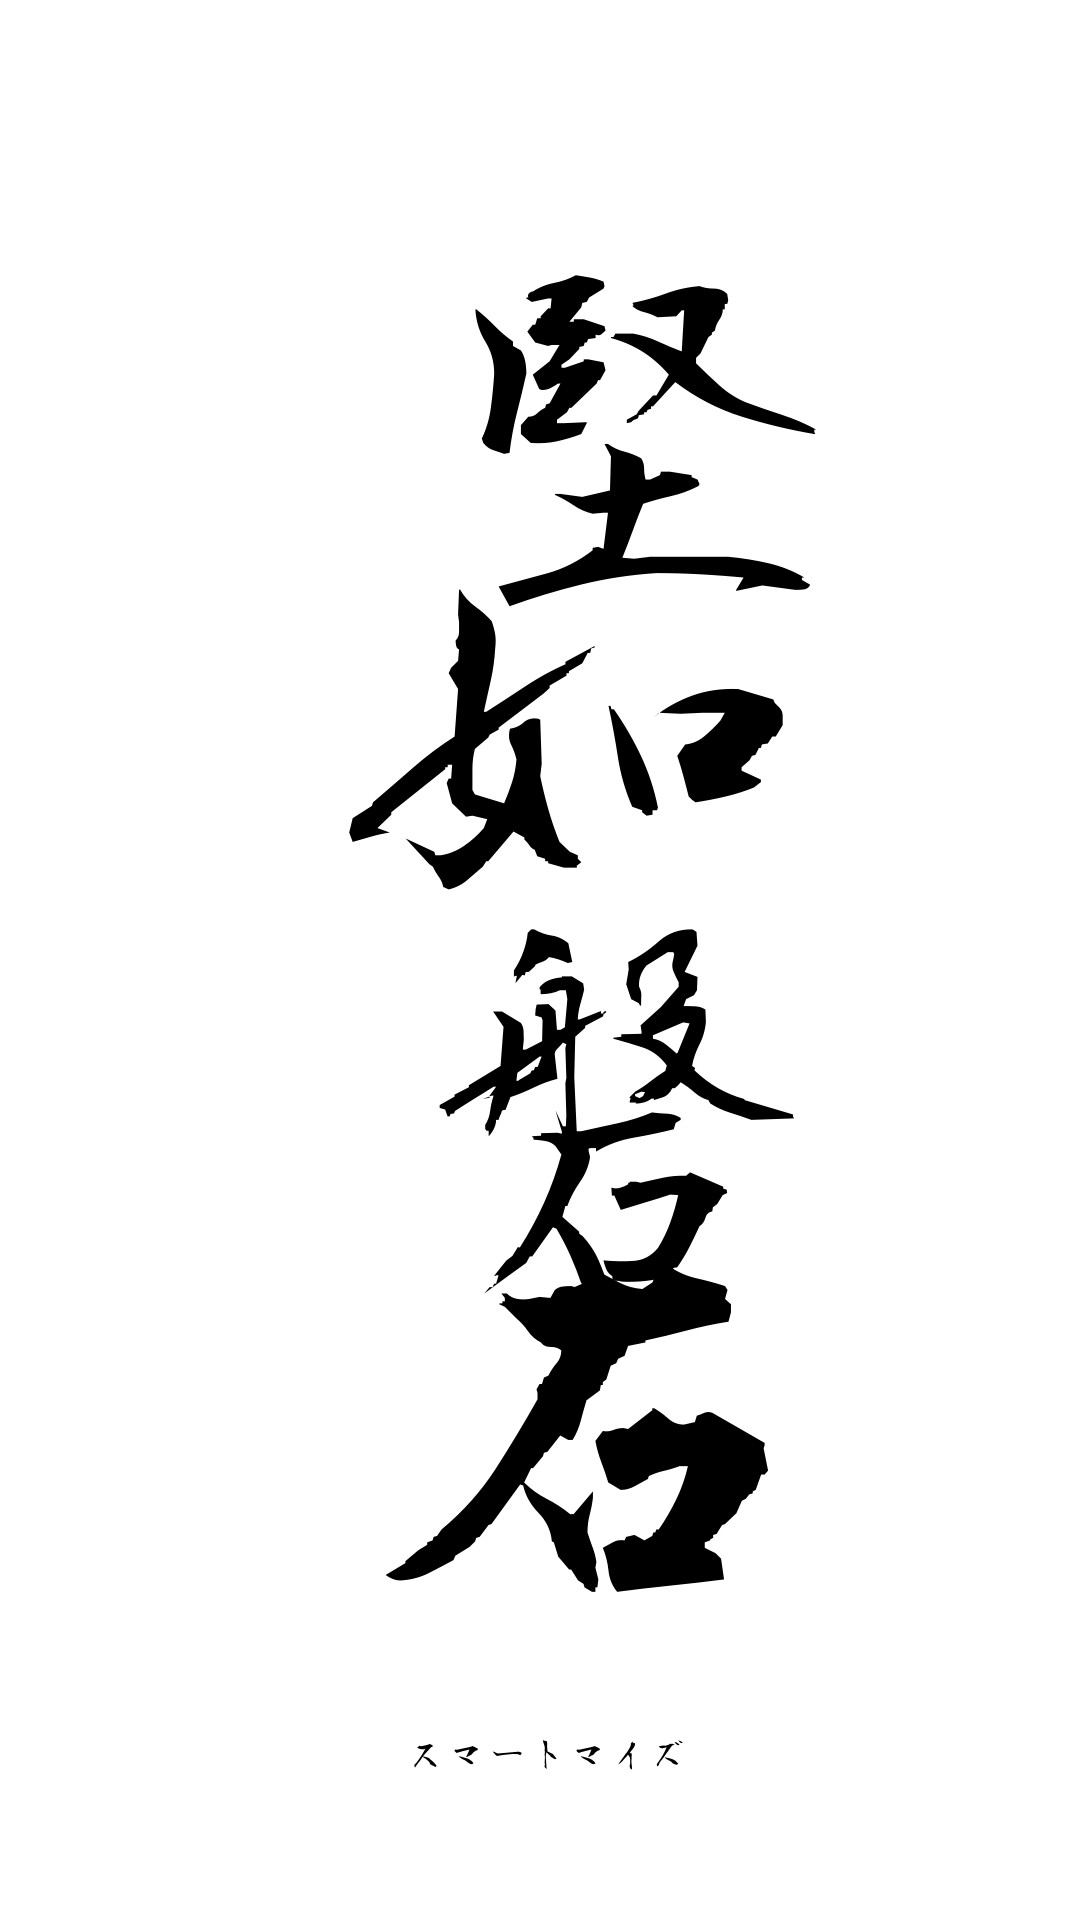 堅如盤石
スマートマイズ